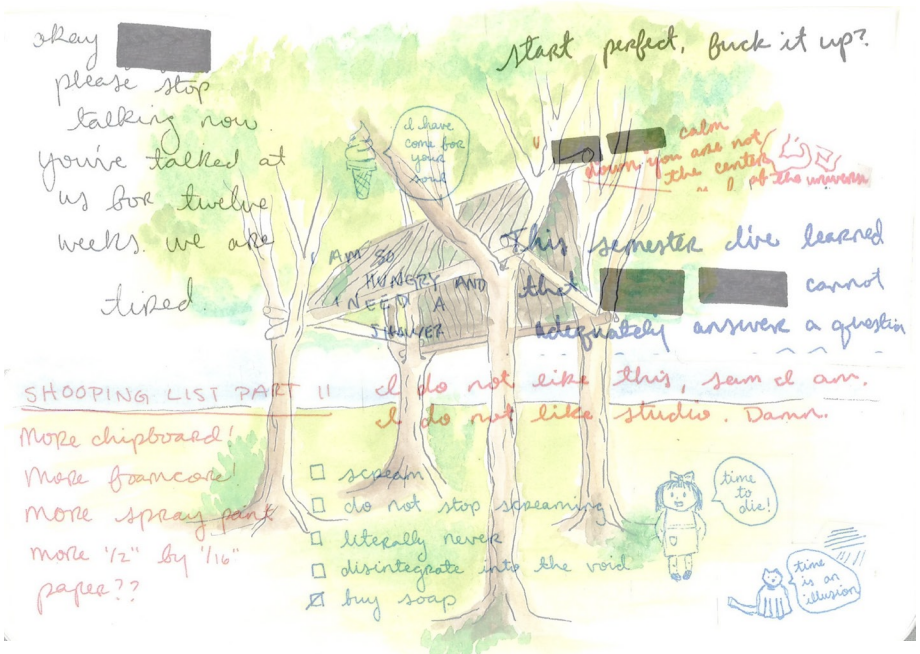 okay
please stop
talking now.
you've talked at
us for twelve
weeks. we are
tired.
start perfect, fuck it up?
I have
come for
your
soul
calm
down you are not
the center
of the universe
I AM SO
HUNGRY AND
I NEED A
SHOWER
This semester I've learned
that cannot
adequately answer a question
SHOOPING LIST PART II
More chipboard!
More foamcore!
More spray pant
more 1/2" by 1/16"
paper??
I do not like this, sam I am.
I do not like studio. Damn.
scream
do not stop screaming
literally never
disintegrate into the void
buy soap
time
to
die!
time
is an
illusion